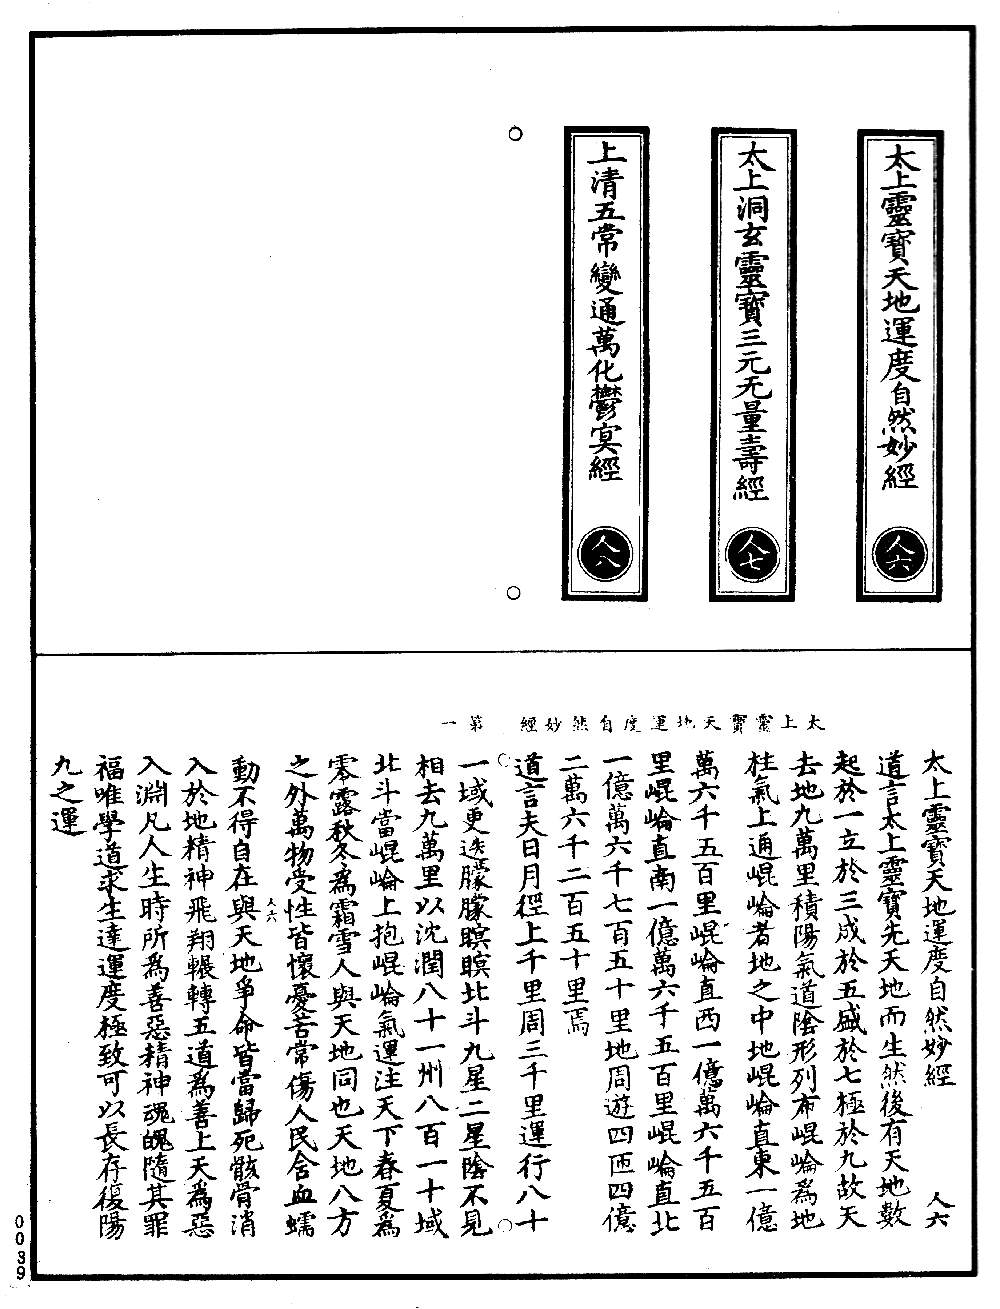 太上靈寶天地運度自然妙經
人六
太上洞玄靈寶三元无量壽經
人七
上清五常變通萬化鬱冥經
人八
太上靈寶天地運度自然妙經 第一
太上靈寶天地運度自然妙經 人六
道言太上靈寶先天地而生然後有天地數
起於一立於三成於五盛於七極於九故天
去地九萬里積陽氣道陰形列布崐崘為地
柱氣上通崐崘者地之中地崐崘直東一億
萬六千五百里崐崘直西一億萬六千五百
里崐崘直南一億萬六千五百里崐崘直北
一億萬六千七百五十里地周遊四匝四億
二萬六千二百五十里焉
道言夫日月徑上千里周三千里運行八十
一域更迭朦朦瞑瞑北斗九星二星陰不見
相去九萬里以沈潤八十一州八百一十域
北斗當崐崘上抱崐崘氣運注天下春夏爲
零露秋冬爲霜雪人與天地同也天地八方
之外萬物受性皆懷憂苦常傷人民含血蠕
人六
動不得自在與天地爭命皆當歸死骸骨消
入於地精神飛翔輾轉五道爲善上天爲惡
入淵凡人生時所爲善惡精神魂魄隨其罪
福唯學道求生達運度極致可以長存復陽
九之運
0039